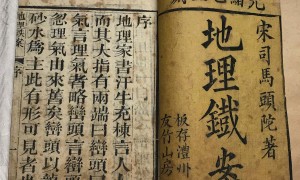 宋司馬頭陀著
地理鐵案
板存澧州
友竹山房
序
地理家書汗牛充棟言人
而其大指有兩端曰巒頭
氣言理氣者略巒頭言巒
忽理氣由來舊矣巒頭以
砂水爲主此有形可見者
地理鐵案
序